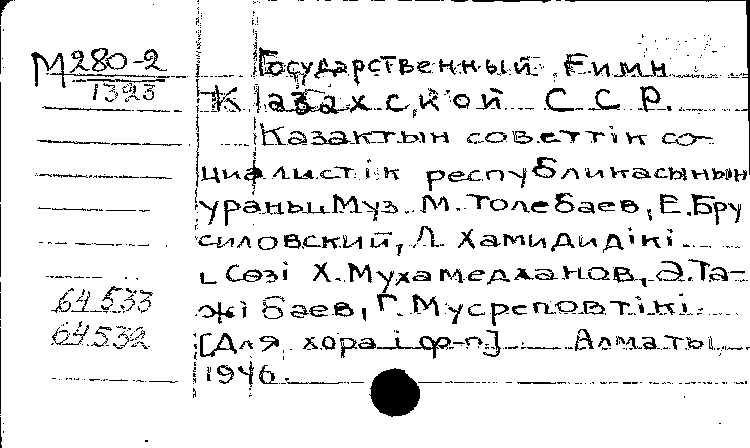 М 280-2
1323
Государственный Гимн
Казахской ССР.
Казактын советтік со-
циалистік республикасынын
ураны. Муз. М. Толебаев, Е. Бру
силовский, Л. Хамидидікі.
Сөзі Х. Мухамеджанов, Ә. Та-
жібаев, Г. Мусреповтікі.
64 533
64 532
[Для хора і ф-п] Алматы,
1946.